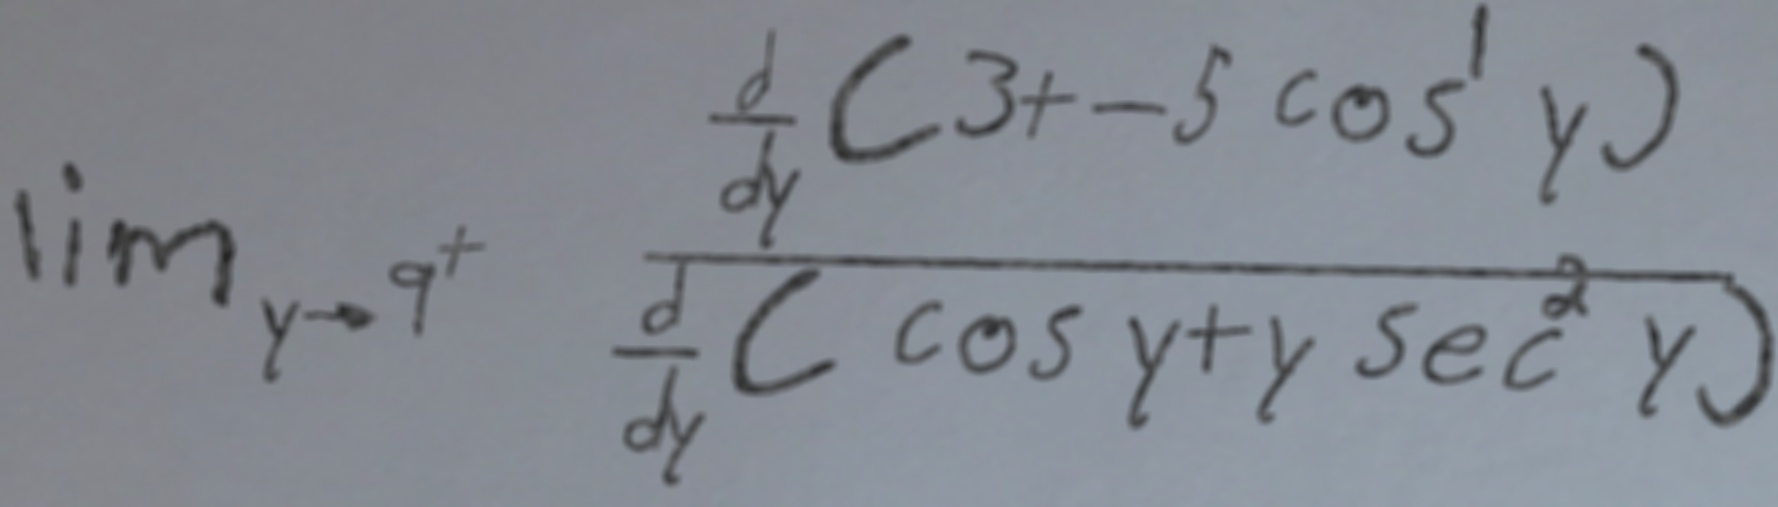 \lim_{y \to 9^+} \frac{\frac{d}{dy}(3+-5\cos^1 y)}{\frac{d}{dy}(\cos y+y\sec^2 y)}